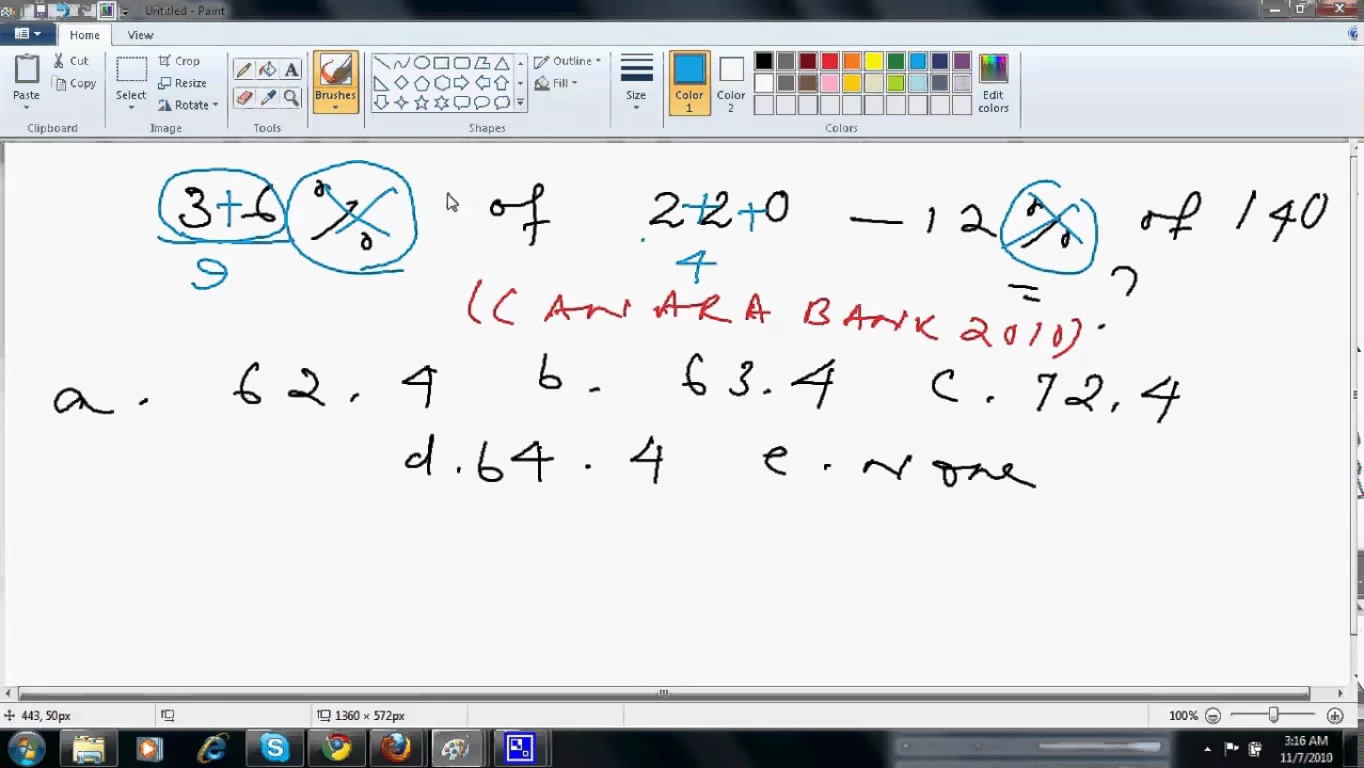 Untitled - Paint
Home View
Cut Crop Outline
Copy Resize Fill
Paste Select Rotate Brushes Size Color 1 Color 2 Edit colors
Clipboard Image Tools Shapes Colors
3+6 % of 2+2+0 — 12 % of 140
9 4 = ?
(CANARA BANK 2010).
a. 62.4 b. 63.4 c. 72.4
d. 64.4 e. None
443, 50px 1360 × 572px 100%
3:16 AM
11/7/2010